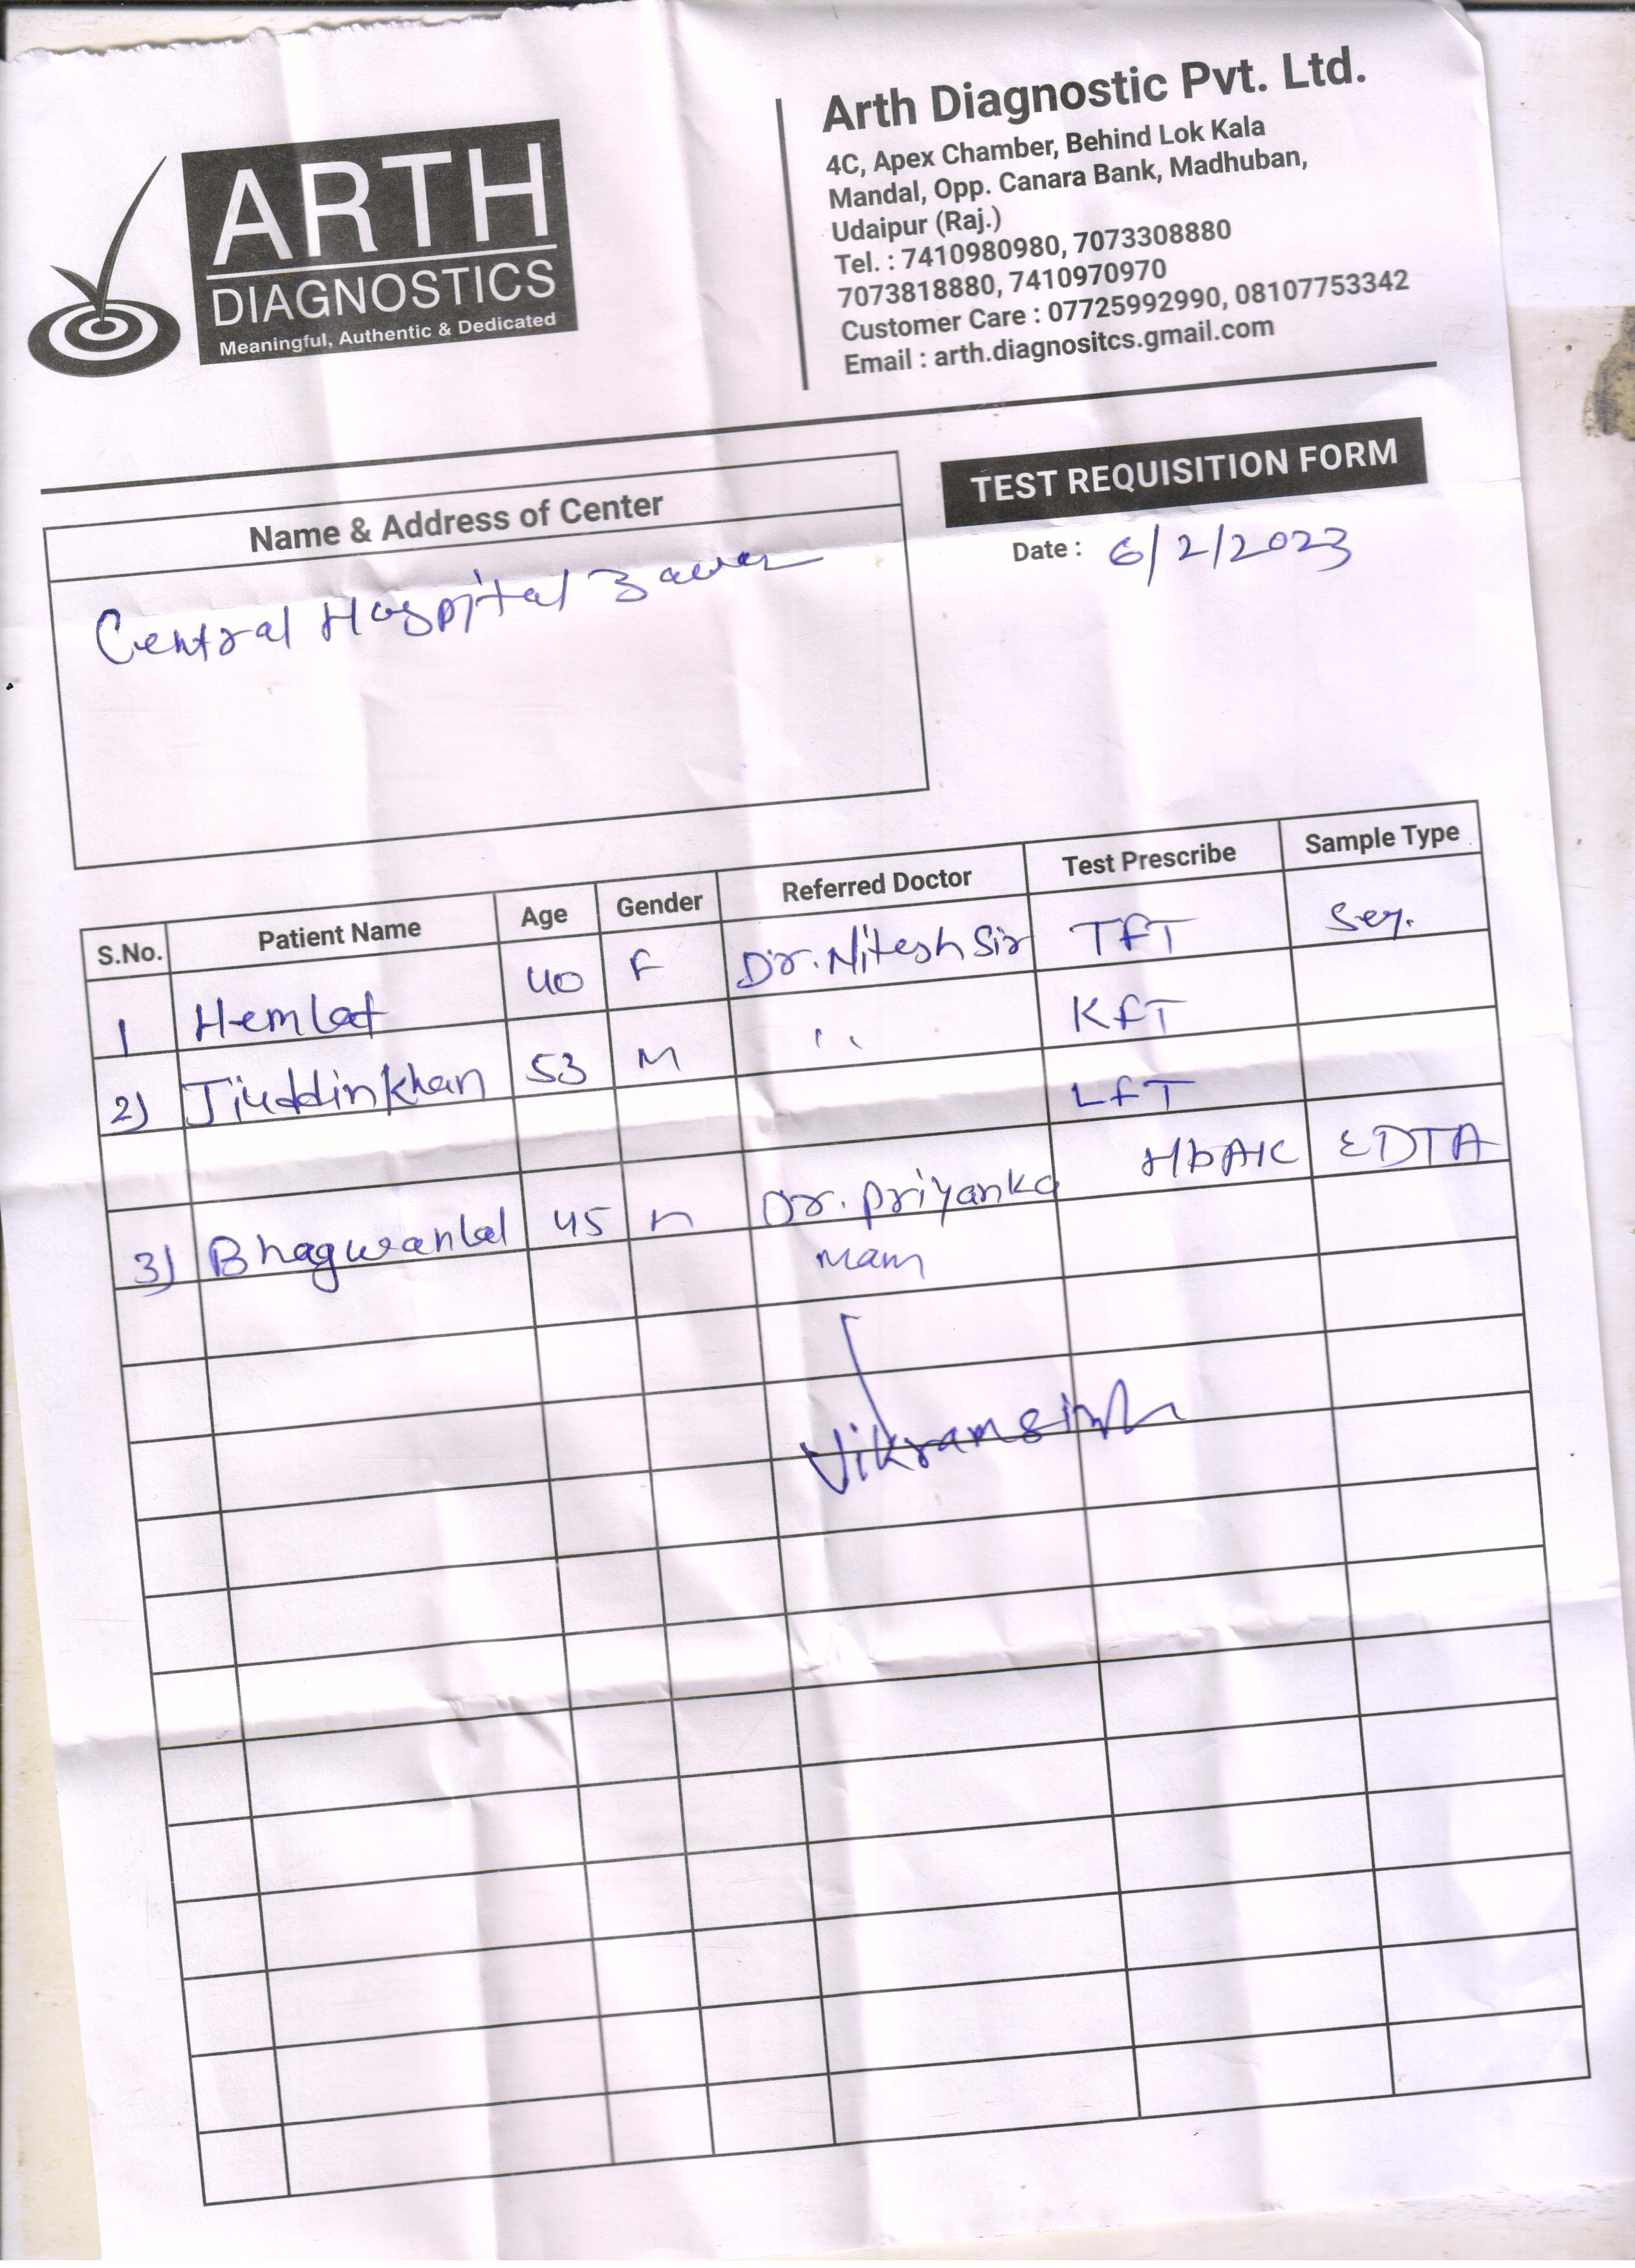 ARTH
DIAGNOSTICS
Meaningful, Authentic & Dedicated
Arth Diagnostic Pvt. Ltd.
4C, Apex Chamber, Behind Lok Kala
Mandal, Opp. Canara Bank, Madhuban,
Udaipur (Raj.)
Tel. : 7410980980, 7073308880
7073818880, 7410970970
Customer Care : 07725992990, 08107753342
Email : arth.diagnositcs.gmail.com
Name & Address of Center
Central Hospital
TEST REQUISITION FORM
Date : 6/2/2023
S.No. Patient Name Age Gender Referred Doctor Test Prescribe Sample Type
1 Hemlat 40 F Dr. Nitesh Sir TFT Ser.
2) Jiuddin khan 53 M " KFT
LFT
3) Bhagwanlal 45 M Dr. Priyanka HbA1c EDTA
Mam
Vikramsinh